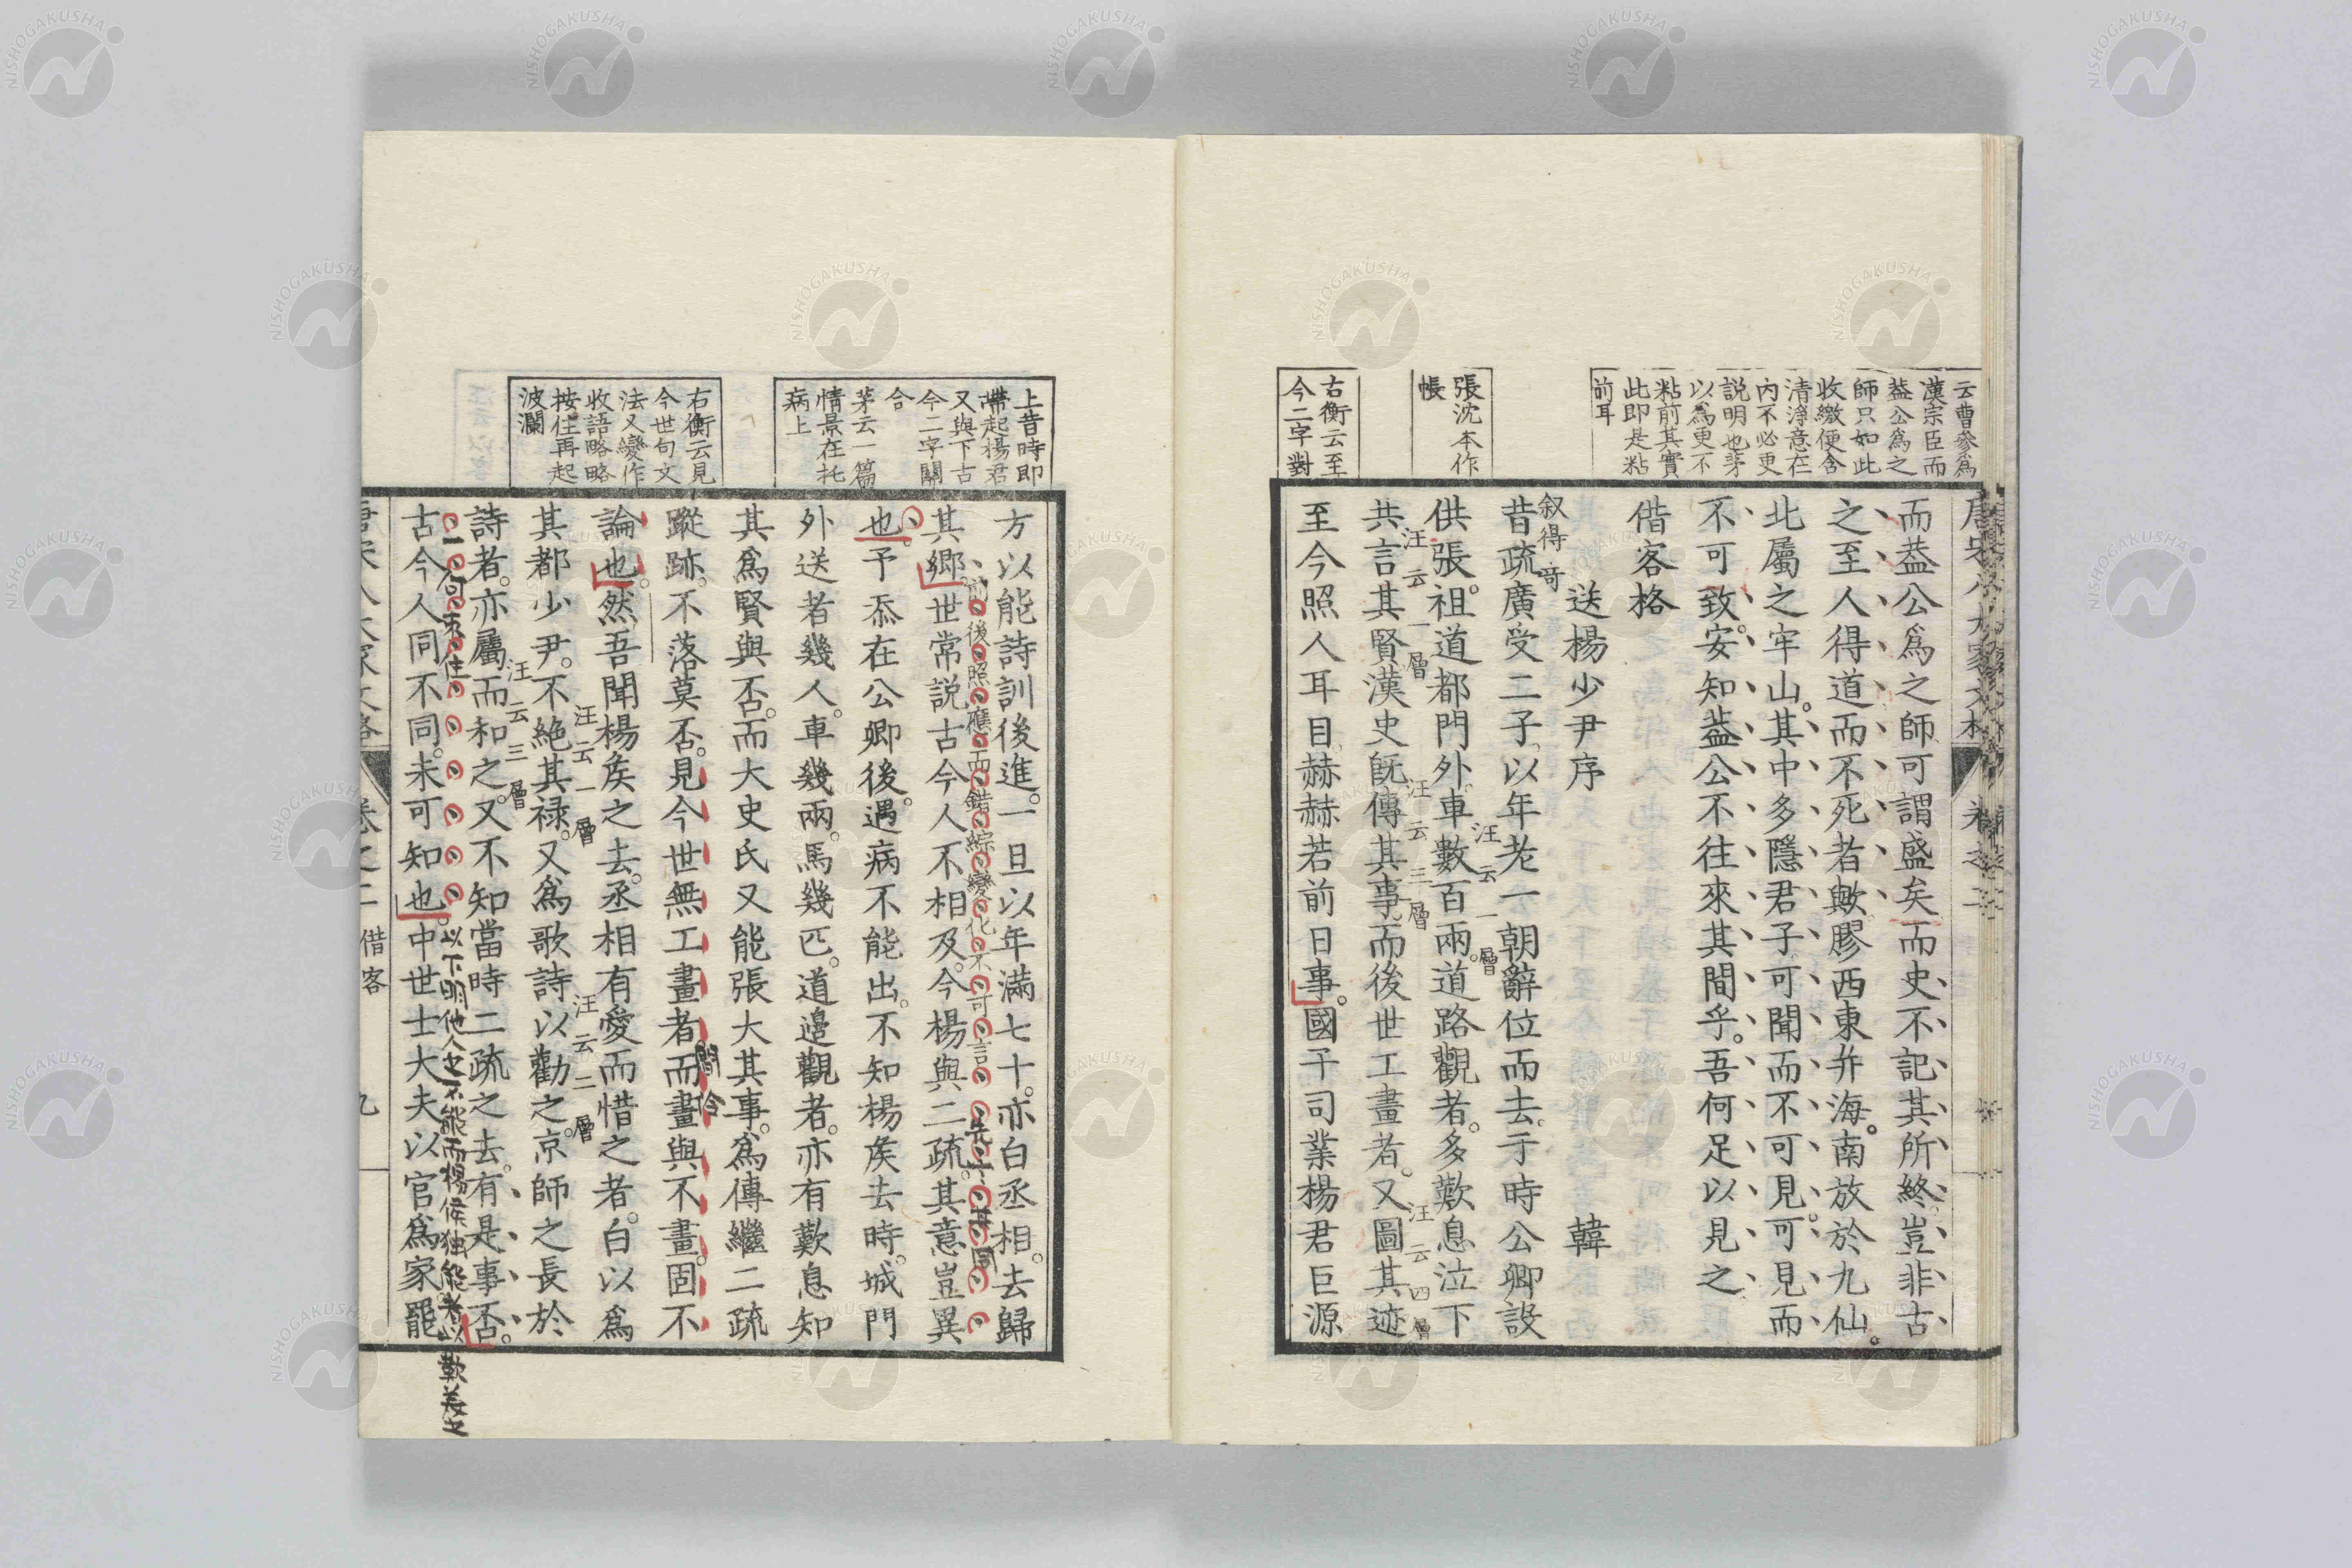 云曹參爲
漢宗臣而
葢公爲之
師只如此
收繳便含
清淨意在
內不必更
説明也茅
以爲更不
粘前其實
此即是粘
前耳
張沈本作
帳
右衡云至
今二字對
而葢公爲之師可謂盛矣而史不記其所終豈非古
之至人得道而不死者歟膠西東并海南放於九仙
此屬之牢山其中多隱君子可聞而不可見可見而
不可致安知葢公不往來其間乎吾何足以見之
借客格
送楊少尹序 韓
叙得奇
昔疏廣受二子以年老一朝辭位而去于時公卿設
汪云一層
供張祖道都門外車數百兩道路觀者多歎息泣下
汪云二層 汪云三層 汪云四層
共言其賢漢史旣傳其事而後世工畫者又圖其迹
至今照人耳目赫赫若前日事國子司業楊君巨源
上昔時即
帶起楊君
又與下古
今二字關
合
茅云一篇
情景在托
病上
右衡云見
今世句文
法又變作
收語略略
按住再起
波瀾
方以能詩訓後進一旦以年滿七十亦白丞相去歸
後照應而錯綜變化不可言
其鄉世常説古今人不相及今楊與二疏其意豈異
也予忝在公卿後遇病不能出不知楊矦去時城門
外送者幾人車幾兩馬幾匹道邊觀者亦有歎息知
其爲賢與否而大史氏又能張大其事爲傳繼二疏
蹤跡不落莫否見今世無工畫者而畫與不畫固不
論也然吾聞楊矦之去丞相有愛而惜之者白以爲
汪云一層 汪云二層
其都少尹不絶其祿又爲歌詩以勸之京師之長於
汪云三層
詩者亦屬而和之又不知當時二疏之去有是事否
以下明他人之不能而楊侯独能
古今人同不同未可知也中世士大夫以官爲家罷
卷之二 借客 九